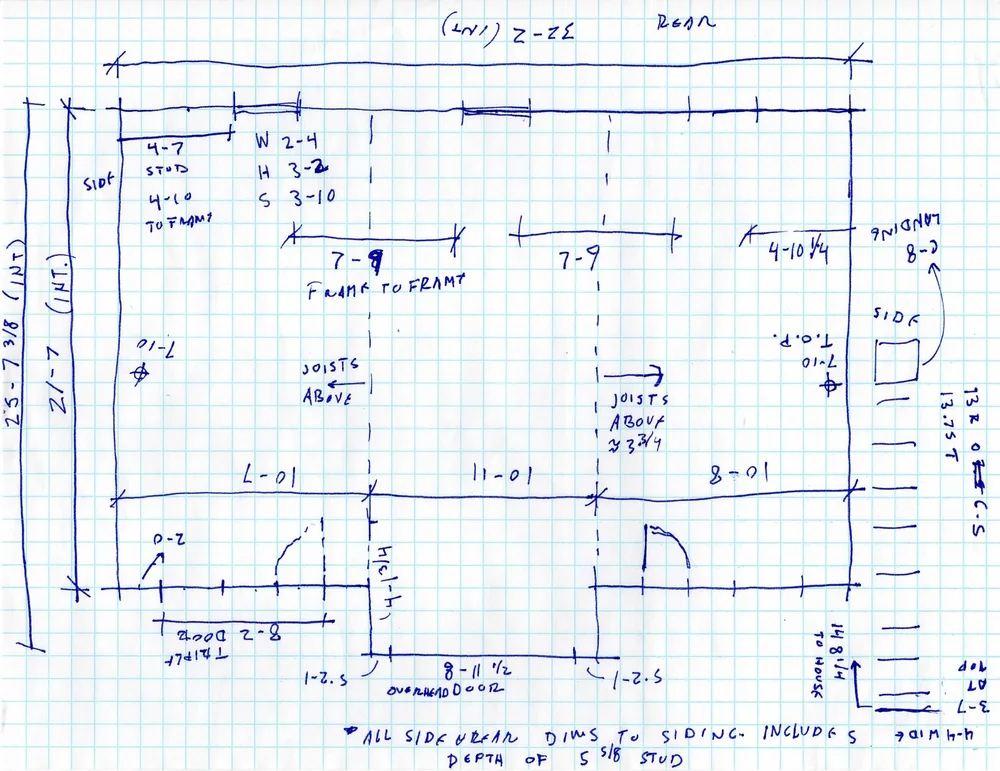 REAR
32-2 (INT)
4-7
STUD
4-10
TO FRAME
W 2-4
H 3-2
S 3-10
SIDE
LANDING
C-8
7-9
FRAME TO FRAME
7-9
4-10 1/4
25-7 3/8 (INT)
21-7 (INT.)
SIDE
7-10
7-10
T.O.P.
JOISTS
ABOVE
JOISTS
ABOVE
≈ 3 3/4
13.75 T
10-7
10-11
10-8
0-2
8-2
TRIPLE
DOOR
1-2.5
8-11 1/2
OVERHEAD DOOR
1-2.5
14 8 1/4
TO HOUSE
3-7
AT
TOP
4-4 WIDE
* ALL SIDE & REAR DIMS TO SIDING. INCLUDES
DEPTH OF 5 5/8 STUD